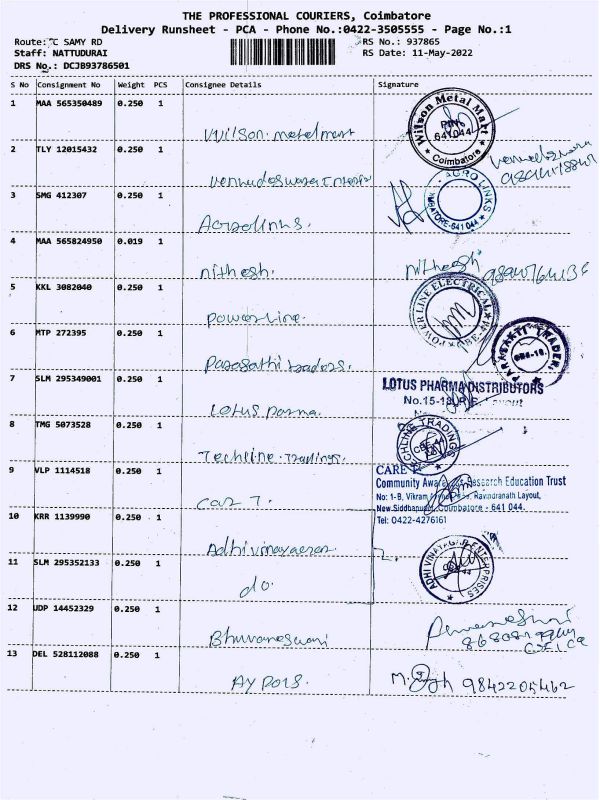 THE PROFESSIONAL COURIERS, Coimbatore
Delivery Runsheet - PCA - Phone No.:0422-3505555 - Page No.:1
Route: C SAMY RD
RS No.: 937865
Staff: NATTUDURAI
RS Date: 11-May-2022
DRS No.: DCJB93786501
S No Consignment No Weight PCS Consignee Details Signature
1 MAA 565350489 0.250 1
Wilson metal mart
Wilson Metal Mart
PIN
641 044
Coimbatore
2 TLY 12015432 0.250 1
3 SMG 412307 0.250 1
Agrolinks.
AGRO LINKS
COIMBATORE-641 044
4 MAA 565824950 0.019 1
nithesh.
Nitheesh
5 KKL 3082040 0.250 1
Powerline.
POWER LINE ELECTRICAL
6 MTP 272395 0.250 1
Parasakthi traders.
PARASAKTHI TRADERS
CBE-18.
7 SLM 295349001 0.250 1
Lotus parma.
LOTUS PHARMA DISTRIBUTORS
8 TMG 5073528 0.250 1
Techline Tradings.
TECHLINE TRADINGS
CBE-44
9 VLP 1114518 0.250 1
CARE T
Community Awareness Research Education Trust
No: 1-B, Vikram Ravindranath Layout,
New Siddhapudur, Coimbatore - 641 044.
Tel: 0422-4276161
10 KRR 1139990 0.250 1
Adhivinayagaa
ADHI VINAYAGA ENTERPRISES
11 SLM 295352133 0.250 1
do.
12 UDP 14452329 0.250 1
Bhuvaneswari
13 DEL 528112088 0.250 1
M. 9842205462